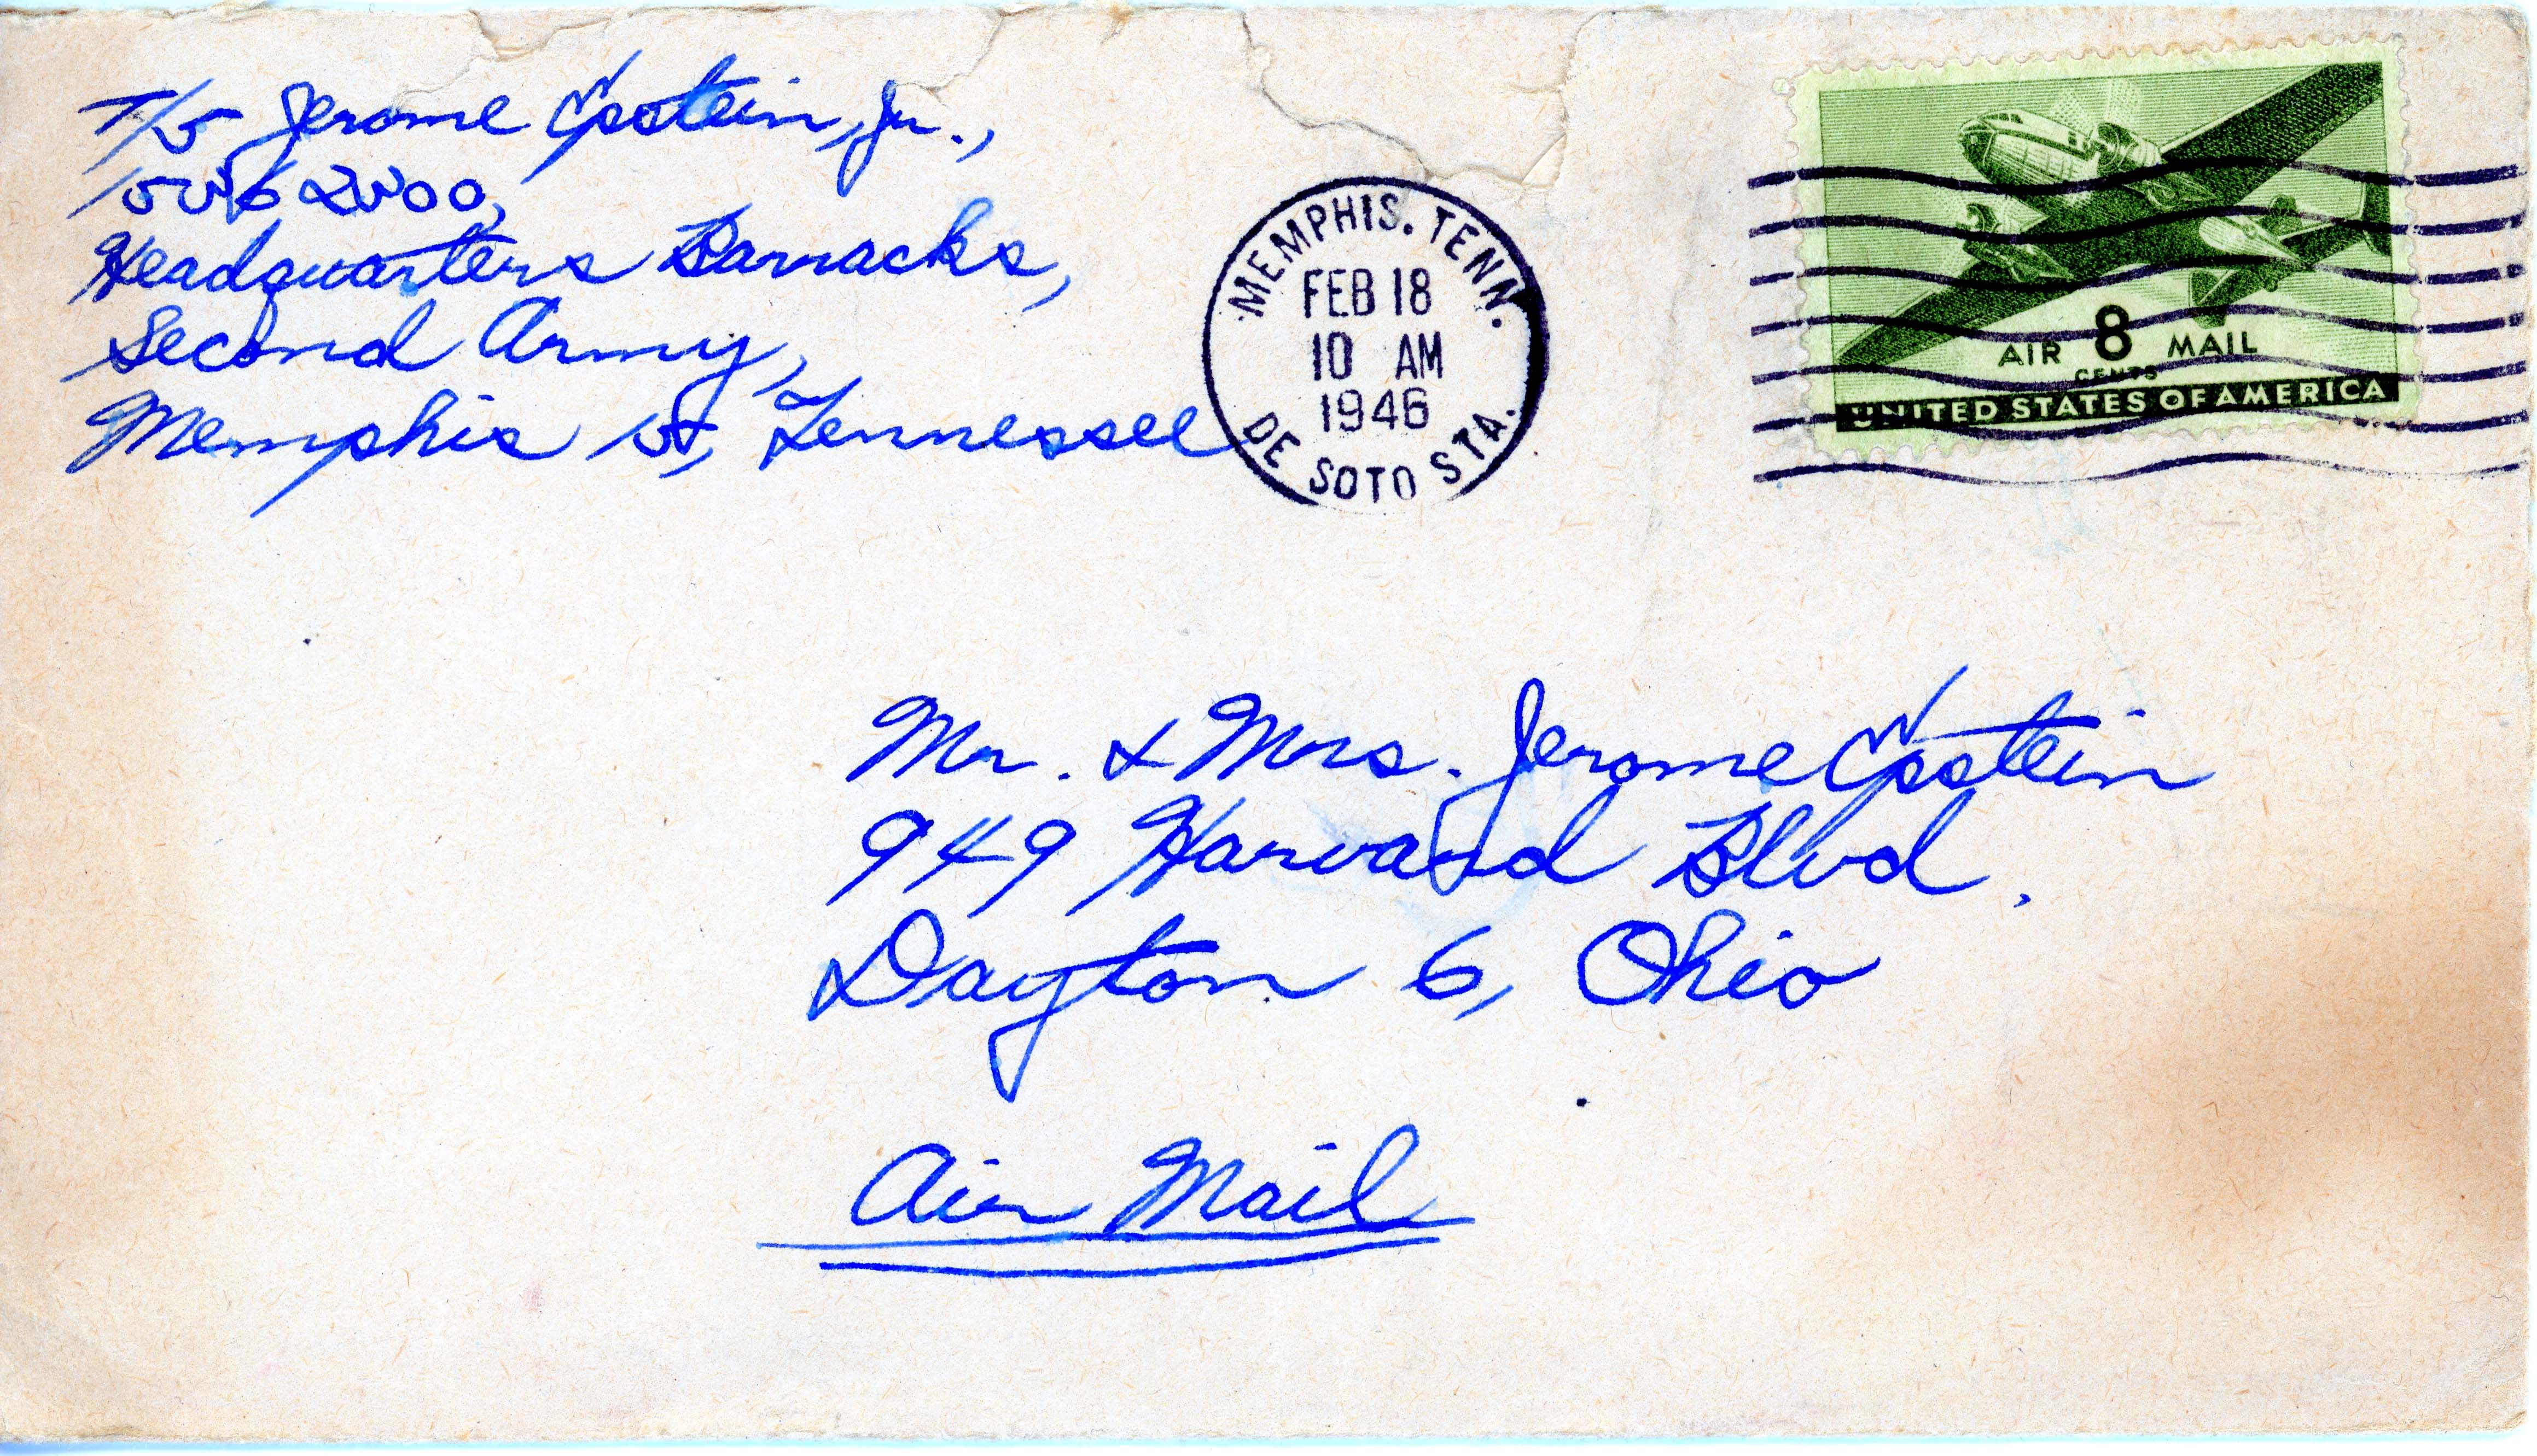 T/5 Jerome Epstein, Jr.,
Headquarters Barracks,
Second Army,
Memphis 15, Tennessee
MEMPHIS. TENN.
FEB 18
10 AM
1946
DE SOTO STA.
AIR 8 MAIL
CENTS
UNITED STATES OF AMERICA
Mr. & Mrs. Jerome Epstein
949 Harvard Blvd.
Dayton 6, Ohio
Air Mail